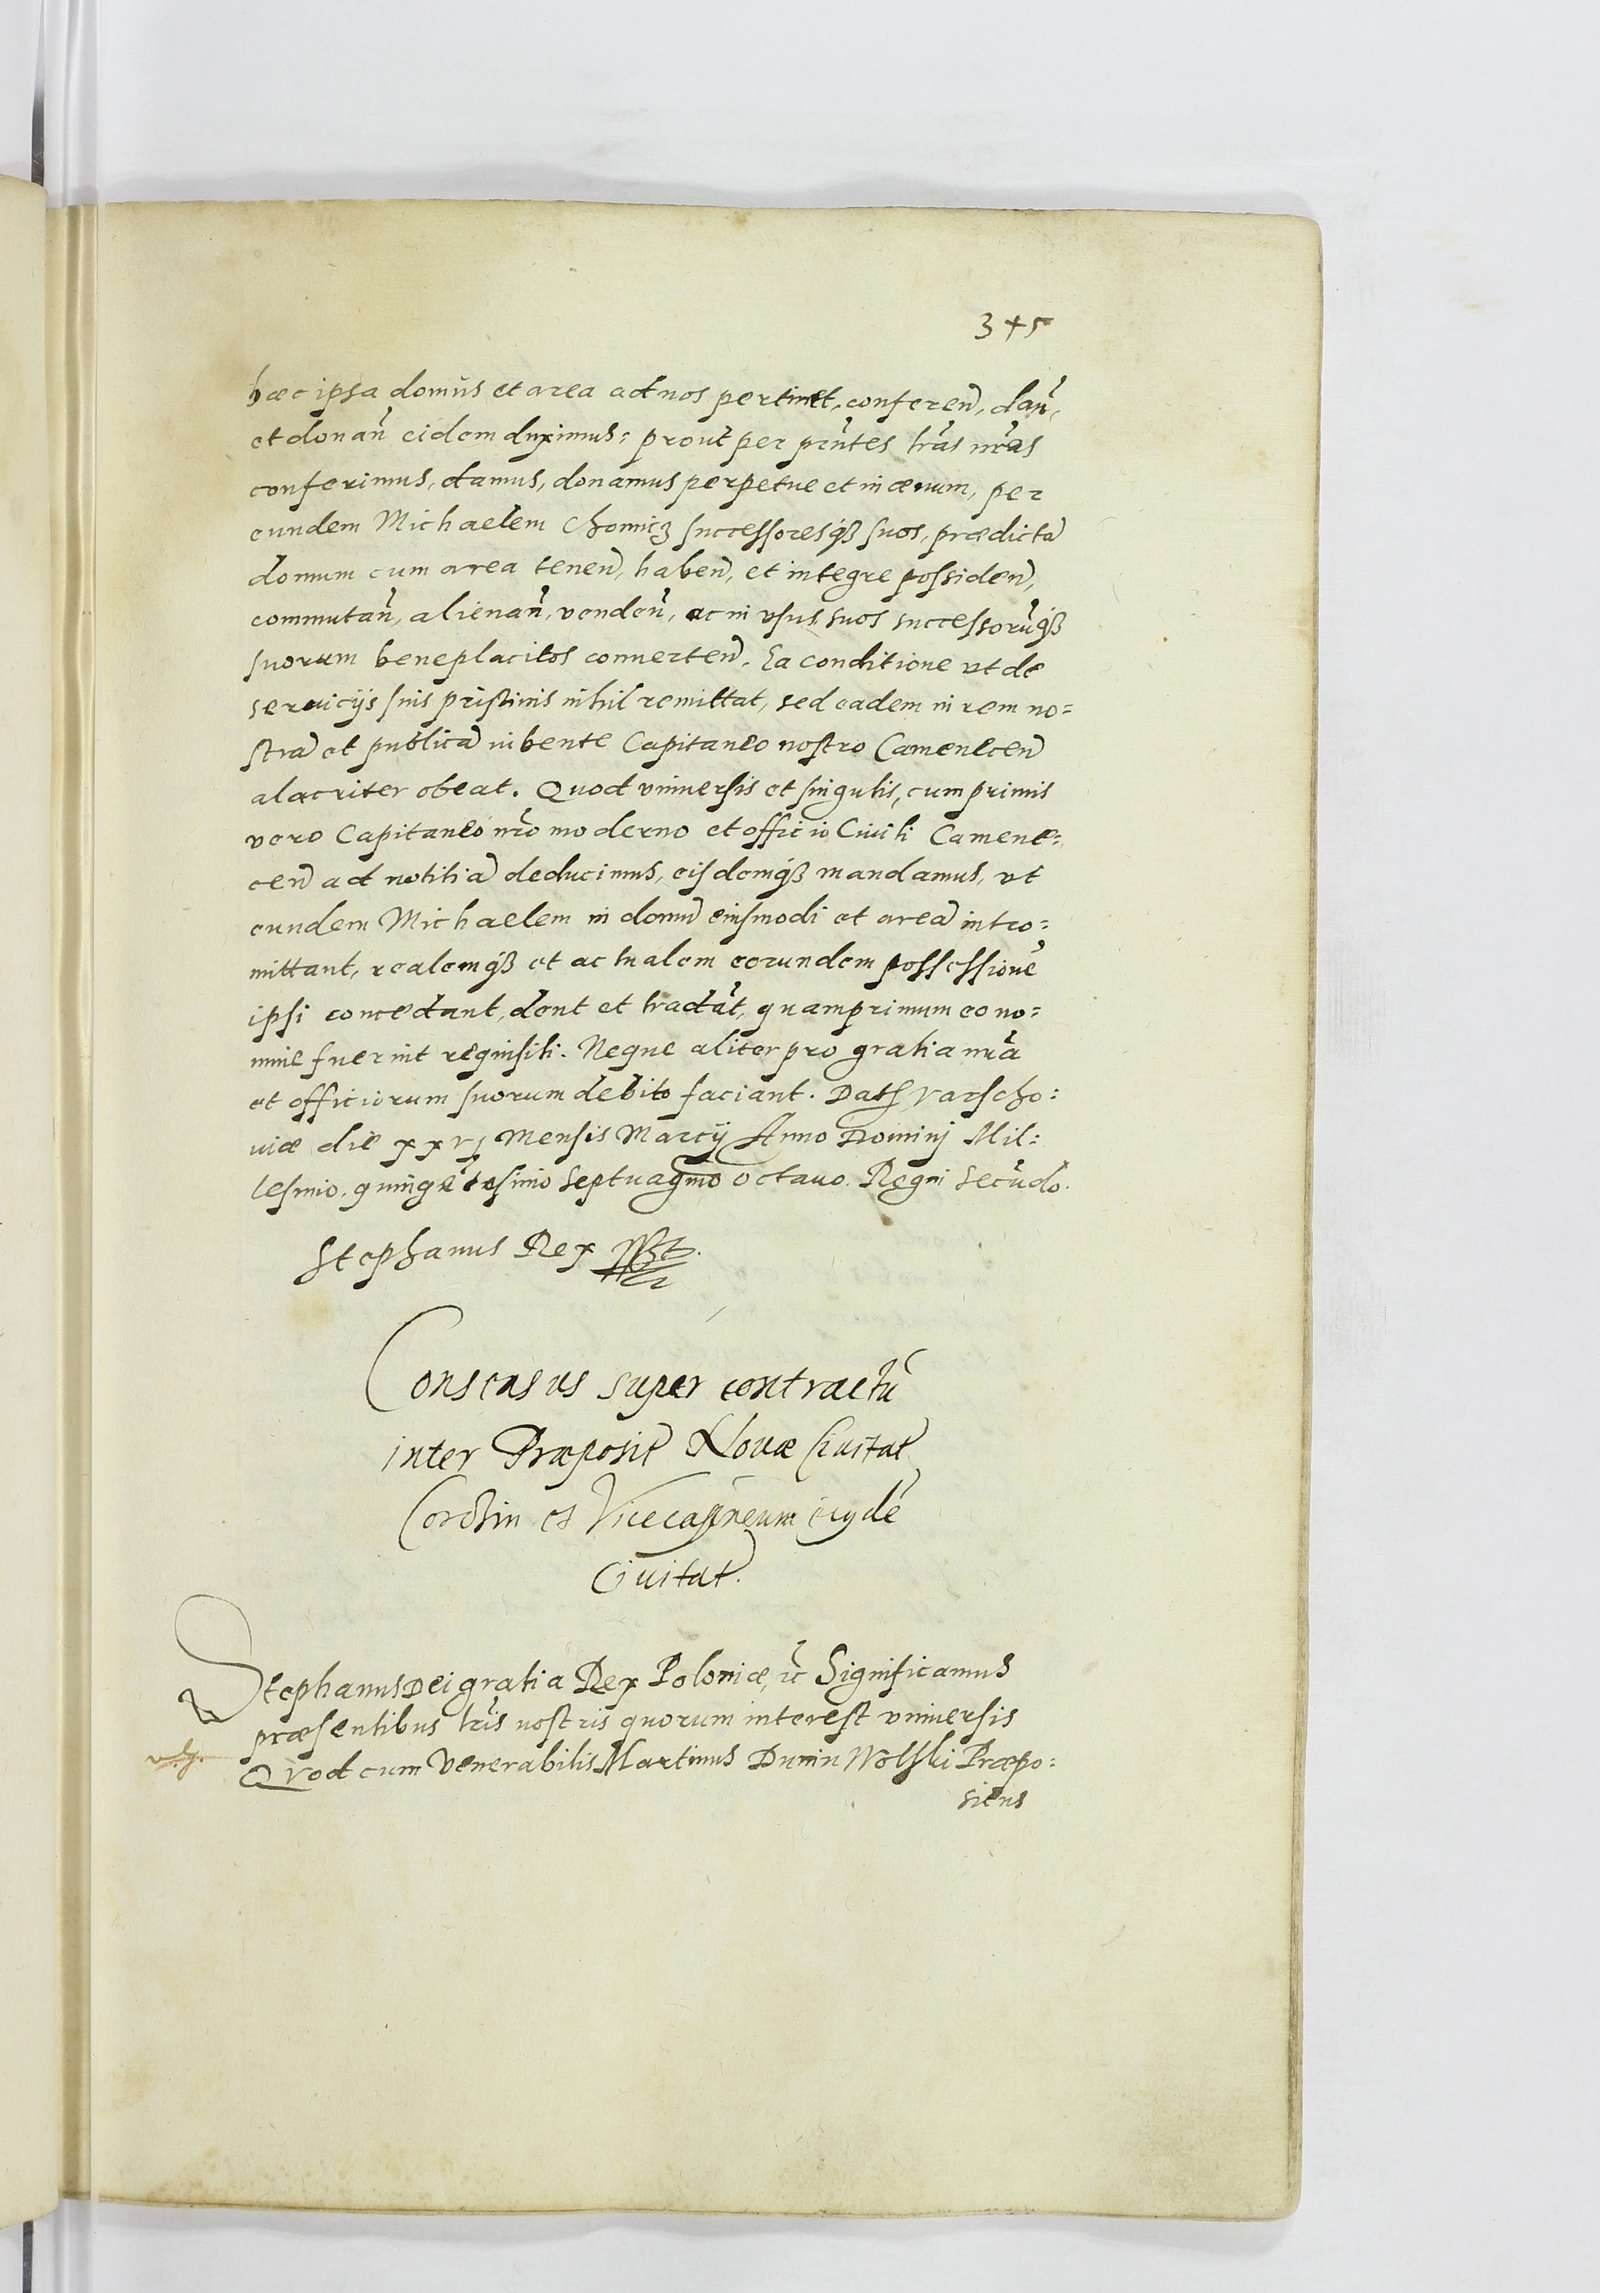 345
hæc ipsa domus et area ad nos pertinet, conferen̄, dan̄,
et donan̄ eidem duximus: prout per pn̄tes lr̄as nr̄as
conferimus, damus, donamus perpetue et in ævum, per
eundem Michaelem Chomicz successoresq₃ suos, prædictā
domum cum area tenen̄, haben̄, et integre possiden̄,
commutan̄, alienan̄, venden̄, ac in vsus suos successorūq₃
suorum beneplacitos conuerten̄. Ea conditione vt de
seruicijs suis pristinis nihil remittat, sed eadem in rem no=
strā et publicā iubente Capitaneo nostro Camenecen̄
alacriter obeat. Quod vniuersis et singulis, cum primis
vero Capitaneo nr̄o moderno et officio Ciuili Camene=
cen̄ ad notitiā deducimus, eisdemq₃ mandamus, vt
eundem Michaelem in domū eiusmodi et areā intro=
mittant, realemq₃ et actualem eorundem possessionē
ipsi concedant, dent et tradāt, quamprimum eo no=
mine fuerint requisiti. Neque aliter pro gratia nr̄a
et officiorum suorum debito faciant. Dat Varscho=
uiæ die xxvj Mensis Marcij Anno Dominj Mil=
lesimo. quingētesimo septuagmo octauo. Regni secūdo.
Stephanus Rex
Consensus super contractū
inter Præposit Nouæ Ciuitat
Corchin et Vicecapneum eiusdē
Ciuitat.
Stephanus Dei gratia Rex Poloniæ, ēc Significamus
præsentibus lr̄is nostris quorum interest vniuersis
Quod cum Venerabilis Martinus Dunin Wolski Præpo=
situs